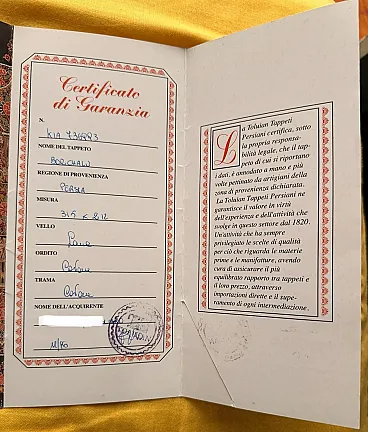 Certificato
di Garanzia
N.
KIA
NOME DEL TAPPETO
BORCHALU
REGIONE DI PROVENIENZA
PERSIA
MISURA
315 x 212
VELLO
Lana
ORDITO
Cotone
TRAMA
Cotone
NOME DELL'ACQUIRENTE
La Toluian Tappeti
Persiani certifica, sotto
la propria responsa-
bilità legale, che il tap-
peto di cui si riportano
i dati, è annodato a mano e più
volte pettinato da artigiani della
zona di provenienza dichiarata.
La Toluian Tappeti Persiani ne
garantisce il valore in virtù
dell'esperienza e dell'attività che
svolge in questo settore dal 1820.
Un'attività che ha sempre
privilegiato le scelte di qualità
per ciò che riguarda le materie
prime e le manifatture, avendo
cura di assicurare il più
equilibrato rapporto tra tappeti e
il loro prezzo, attraverso
importazioni dirette e il supe-
ramento di ogni intermediazione.